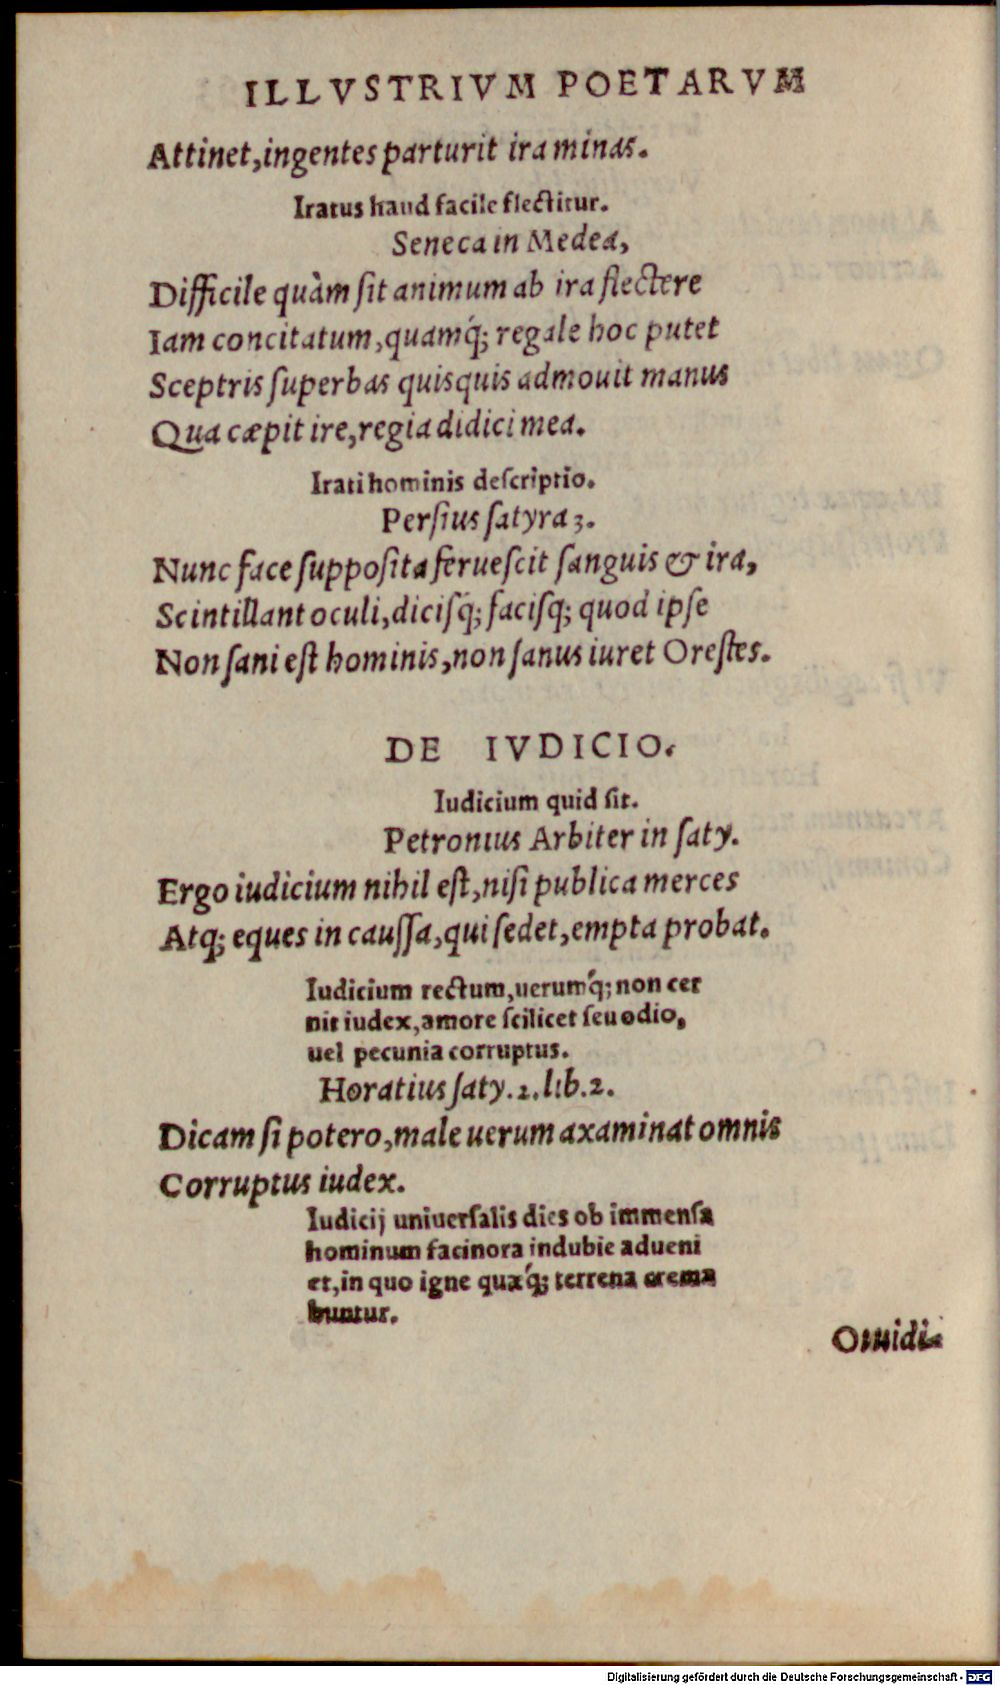 ILLVSTRIVM POETARVM
Attinet, ingentes parturit ira minas.
Iratus haud facile flectitur.
Seneca in Medea,
Difficile quàm ſit animum ab ira flectere
Iam concitatum, quamq́; regale hoc putet
Sceptris ſuperbas quisquis admouit manus
Qua cæpit ire, regia didici mea.
Irati hominis deſcriptio.
Perſius ſatyra 3.
Nunc face ſuppoſita ferueſcit ſanguis & ira,
Scintillant oculi, diciſq́; faciſq; quod ipſe
Non ſani eſt hominis, non ſanus iuret Oreſtes.
DE IVDICIO.
Iudicium quid ſit.
Petronius Arbiter in ſaty.
Ergo iudicium nihil eſt, niſi publica merces
Atq; eques in cauſſa, qui ſedet, empta probat.
Iudicium rectum, uerumq́; non cer
nit iudex, amore ſcilicet ſeu odio,
uel pecunia corruptus.
Horatius ſaty. 2. lib. 2.
Dicam ſi potero, male uerum axaminat omnis
Corruptus iudex.
Iudicij uniuerſalis dies ob immenſa
hominum facinora indubie adueni
et, in quo igne quæq́; terrena crema
buntur.
Ouidi⸗
Digitalisierung gefördert durch die Deutsche Forschungsgemeinschaft - DFG